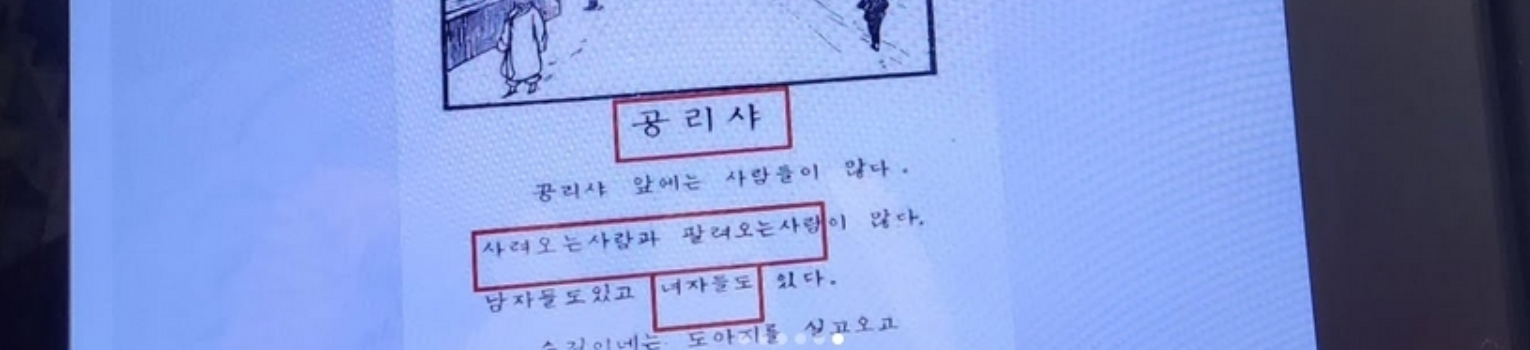 공리샤
공리샤 앞에는 사람들이 많다.
사려오는사람과 팔려오는사람이 많다.
남자들도있고 녀자들도 있다.
도야지를 실고오고